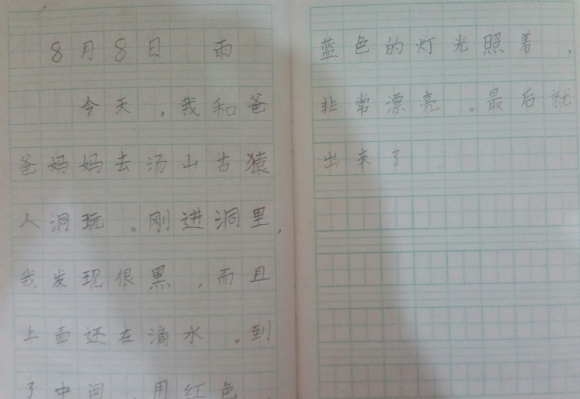 8月8日 雨
今天,我和爸
爸妈妈去汤山古猿
人洞玩。刚进洞里,
我发现很黑,而且
上面还在滴水。到
了中间,用红色、
蓝色的灯光照着,
非常漂亮。最后就
出来了